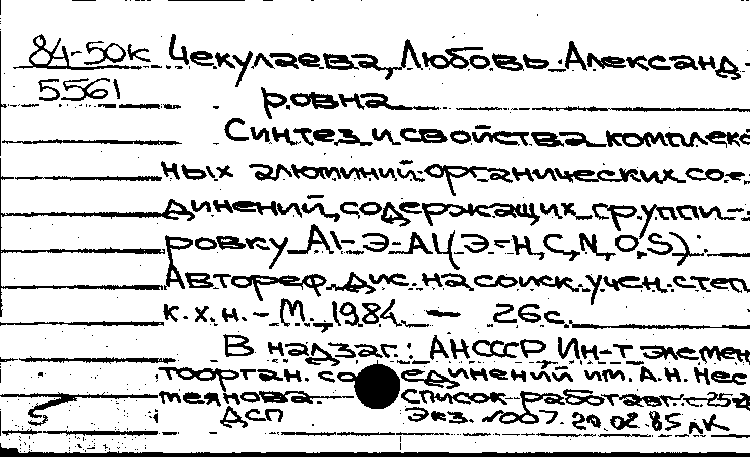 84-50к Чекулаева, Любовь Александ-
5561
ровна
Синтез и свойства комплекс
ных алюминийорганических сое
динений, содержащих группи-
ровку Al-Э-Al (Э=H,C,N,O,S):
Автореф. дис. на соиск. учен. степ
к.х.н. - М., 1984. — 26с.
В надзаг.: АНСССР Ин-т элемен
тоорган. соединений им. А.Н. Нес
меянова. список работ авт.: с. 25-2
5 ДСП Экз. №007. 20.02.85 лк